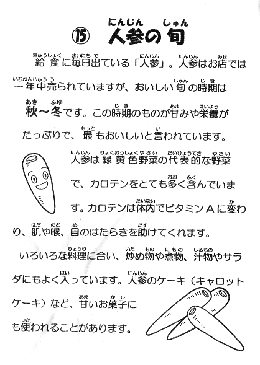 ⑮ 人参の旬
給食に毎日出ている「人参」。人参はお店では
一年中売られていますが、おいしい旬の時期は
秋～冬です。この時期のものが甘みや栄養が
たっぷりで、最もおいしいと言われています。
人参は緑黄色野菜の代表的な野菜
で、カロテンをとても多く含んでいま
す。カロテンは体内でビタミンAに変わ
り、肌や喉、目のはたらきを助けてくれます。
いろいろな料理に合い、炒め物や煮物、汁物やサラ
ダにもよく入っています。人参のケーキ（キャロット
ケーキ）など、甘いお菓子に
も使われることがあります。